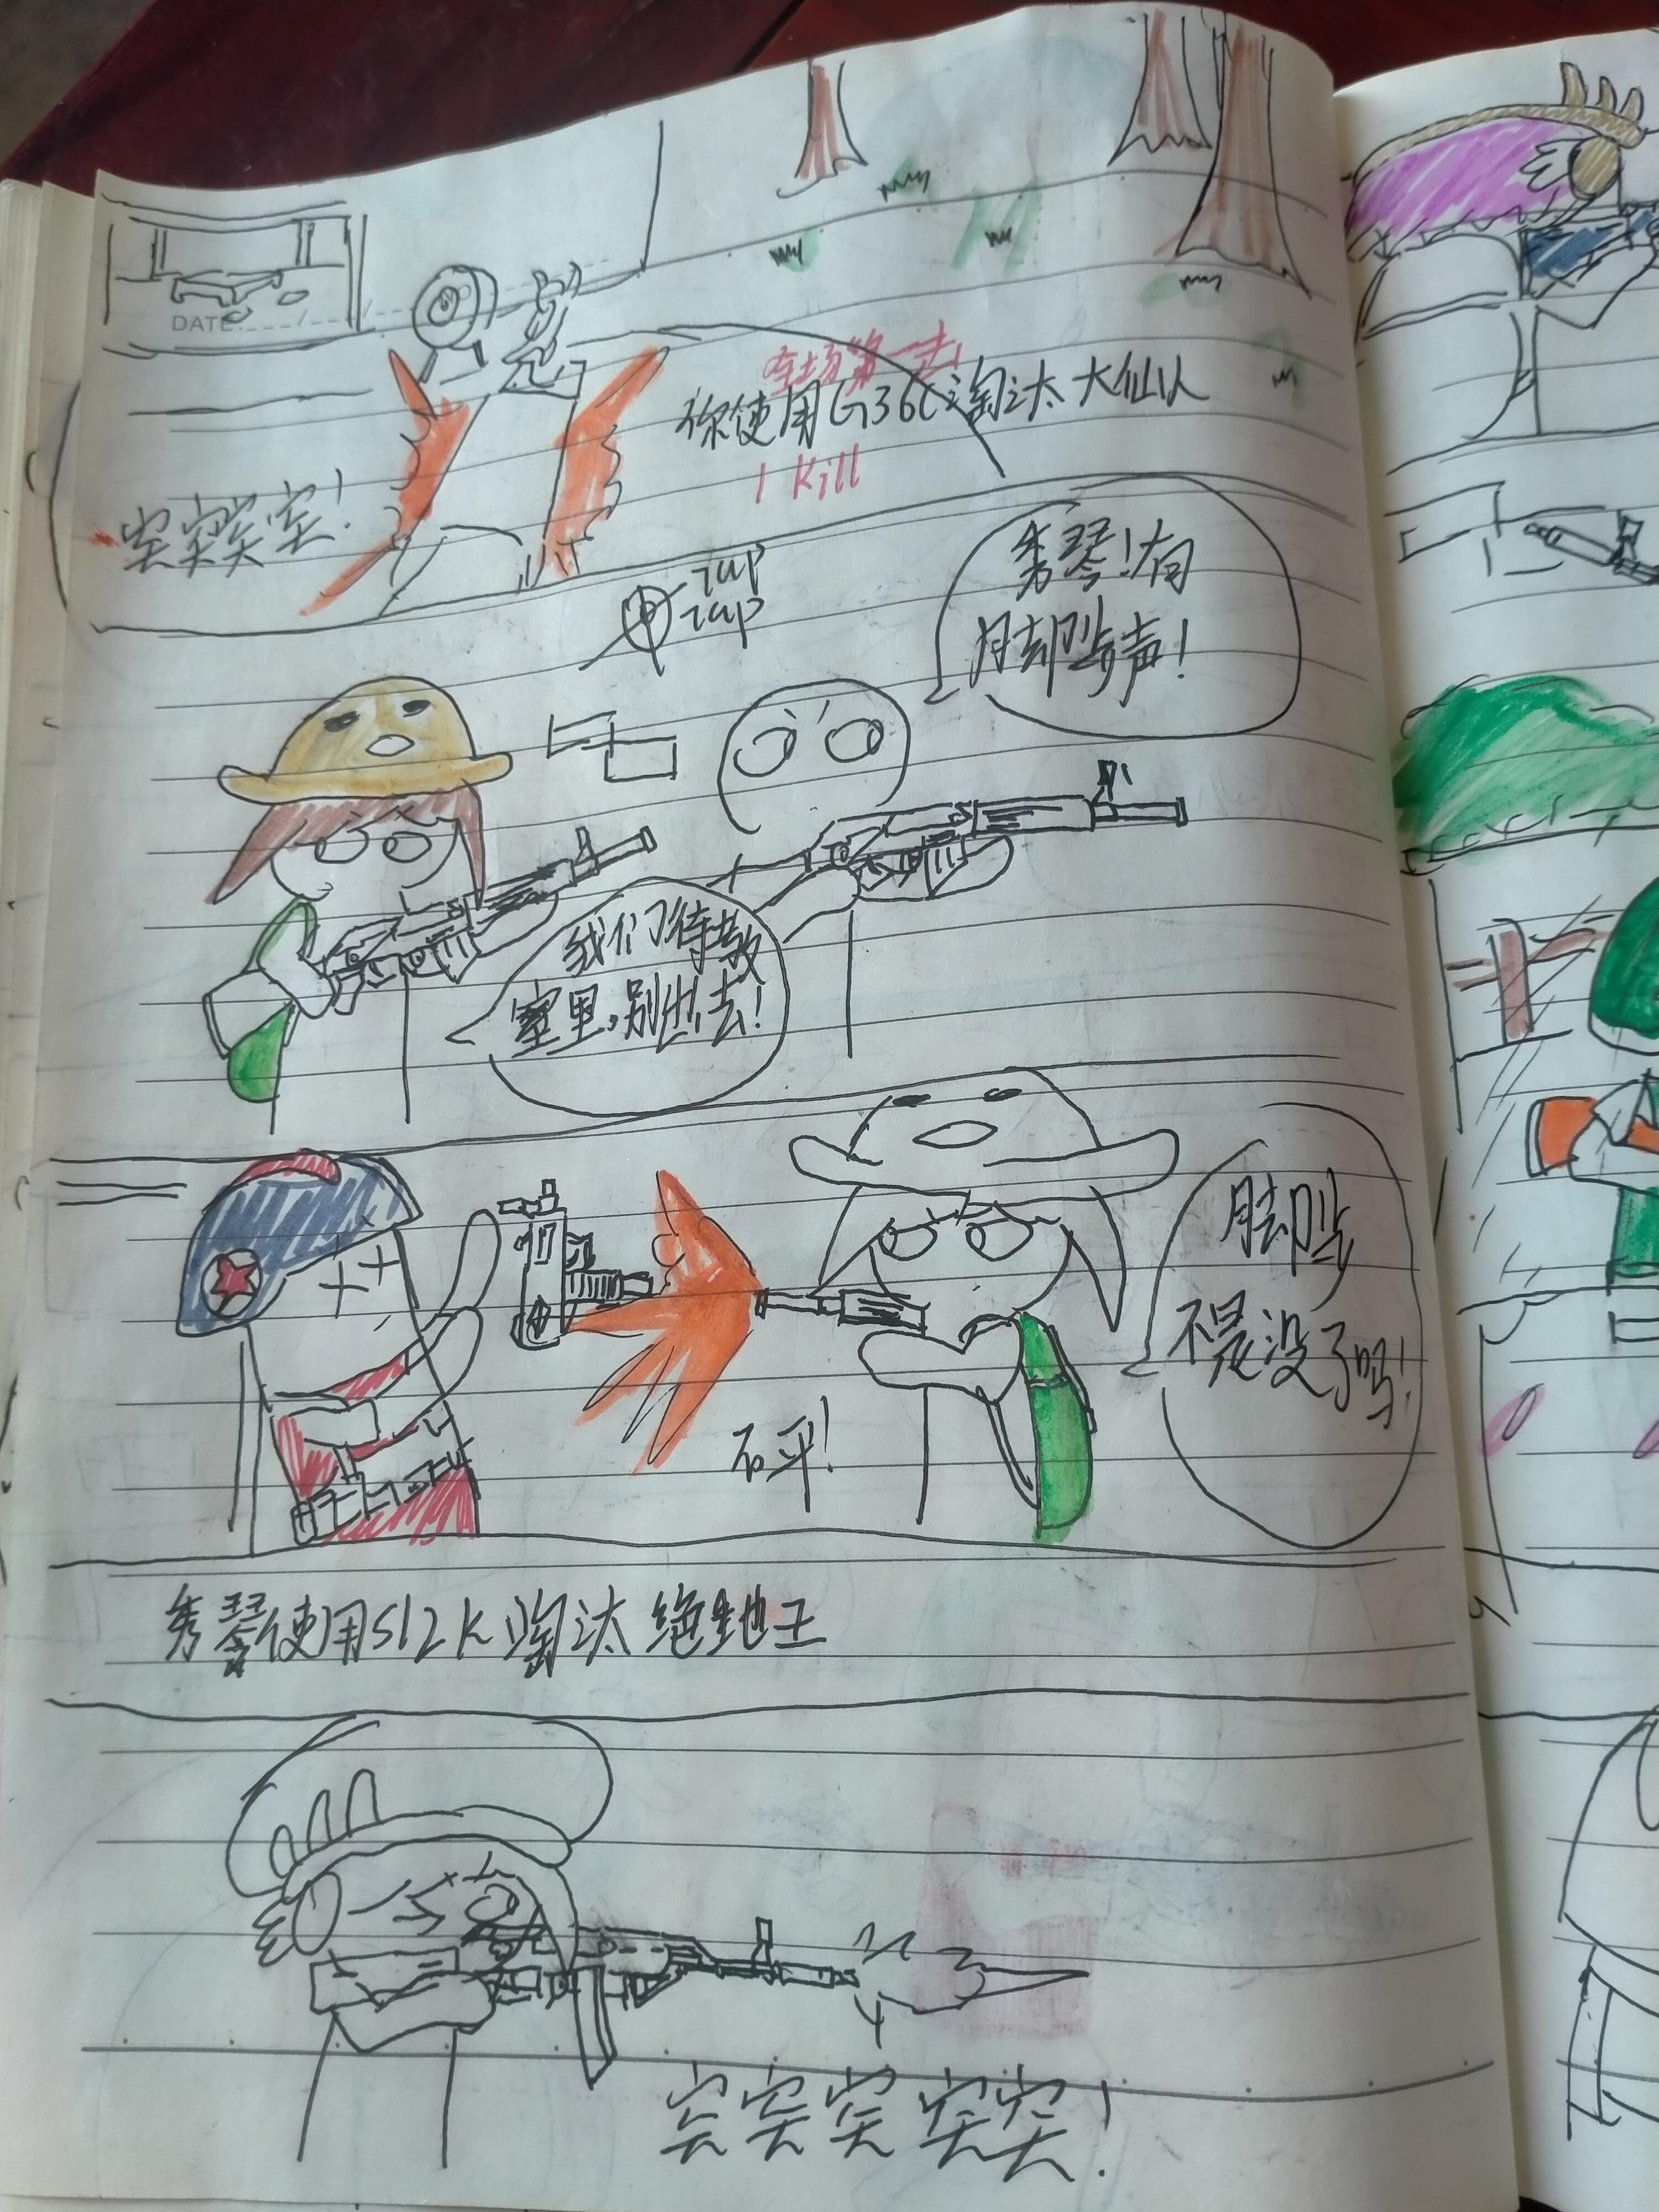 DATE
全场第一击!
你使用G36C淘汰大仙人
1 Kill
突突突突!
tap
tap
秀琴!有
脚步声!
我们待教
室里,别出去!
脚步
不是没了吗!
砰!
秀琴使用S12K淘汰绝地王
突突突突突!